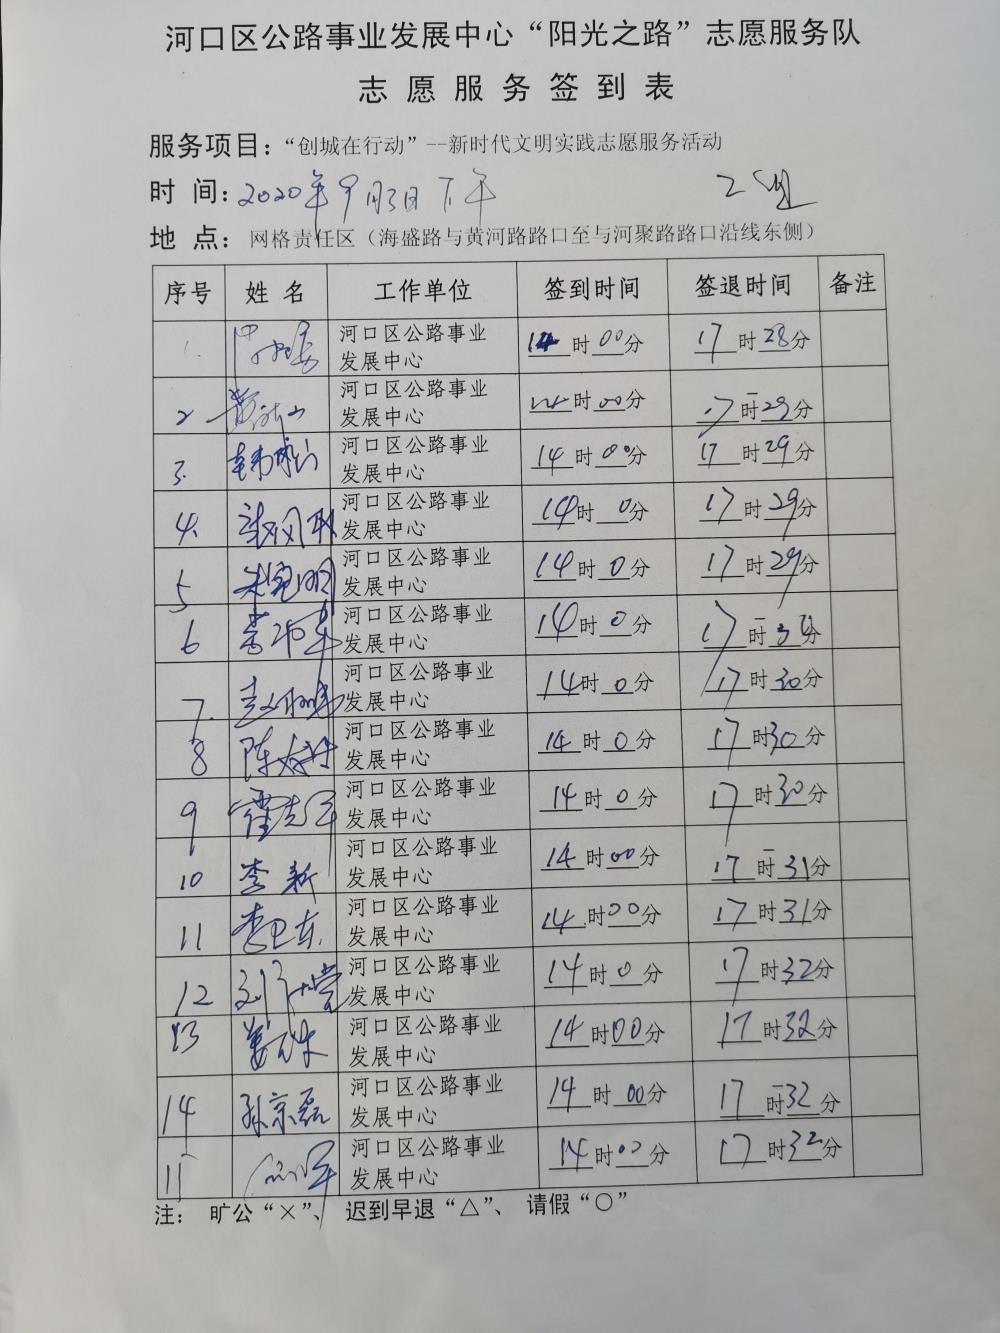 河口区公路事业发展中心“阳光之路”志愿服务队
志 愿 服 务 签 到 表
服务项目：“创城在行动”--新时代文明实践志愿服务活动
时 间：2020年9月3日下午 2组
地 点：网格责任区（海盛路与黄河路路口至与河聚路路口沿线东侧）
序号 姓 名 工作单位 签到时间 签退时间 备注
1. 河口区公路事业发展中心 14时00分 17时28分
2 河口区公路事业发展中心 14时00分 17时29分
3. 河口区公路事业发展中心 14时00分 17时29分
4. 河口区公路事业发展中心 14时0分 17时29分
5 河口区公路事业发展中心 14时0分 17时29分
6 河口区公路事业发展中心 14时0分 17时分
7. 河口区公路事业发展中心 14时0分 17时30分
8 河口区公路事业发展中心 14时0分 17时30分
9 河口区公路事业发展中心 14时0分 17时30分
10 李新 河口区公路事业发展中心 14时00分 17时31分
11 李卫东 河口区公路事业发展中心 14时00分 17时31分
12 河口区公路事业发展中心 14时0分 17时32分
13 河口区公路事业发展中心 14时00分 17时32分
14 孙京磊 河口区公路事业发展中心 14时00分 17时32分
河口区公路事业发展中心 14时00分 17时32分
注： 旷公“×”、 迟到早退“△”、 请假“○”